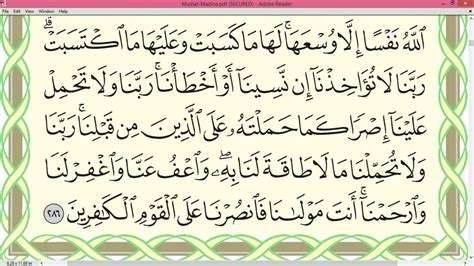 Mushaf-Madina.pdf (SECURED) - Adobe Reader
ٱللَّهُ نَفْسًا إِلَّا وُسْعَهَا ۚ لَهَا مَا كَسَبَتْ وَعَلَيْهَا مَا ٱكْتَسَبَتْ ۗ
رَبَّنَا لَا تُؤَاخِذْنَآ إِن نَّسِينَآ أَوْ أَخْطَأْنَا ۚ رَبَّنَا وَلَا تَحْمِلْ
عَلَيْنَآ إِصْرًا كَمَا حَمَلْتَهُۥ عَلَى ٱلَّذِينَ مِن قَبْلِنَا ۚ رَبَّنَا
وَلَا تُحَمِّلْنَا مَا لَا طَاقَةَ لَنَا بِهِۦ ۖ وَٱعْفُ عَنَّا وَٱغْفِرْ لَنَا
وَٱرْحَمْنَآ ۚ أَنتَ مَوْلَىٰنَا فَٱنصُرْنَا عَلَى ٱلْقَوْمِ ٱلْكَٰفِرِينَ ٢٨٦